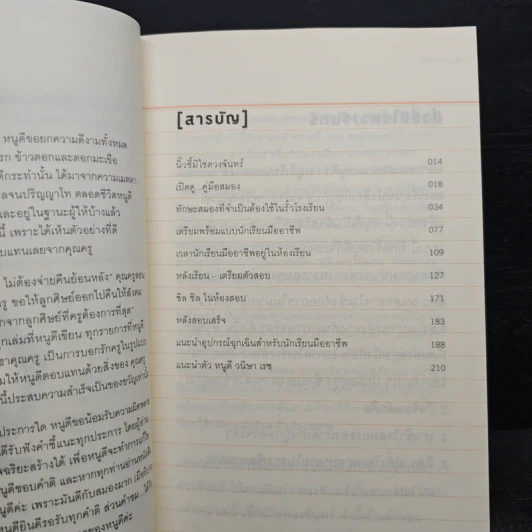 หนูดีขอยกความดีงามทั้งหมด
ข้าวตอกและดอกมะเขือ
ดีกระเท่านั้น ได้มาจากความเมตตา
ลจนปริญญาโท ตลอดชีวิตหนูดี
และอยู่ในฐานะผู้ให้บ้างแล้ว
นี้ เพราะได้เห็นตัวอย่างที่ดี
อบแทนเลยจากคุณครู
ไม่ต้องจ่ายคืนย้อนหลัง"
ขอให้ลูกศิษย์ออกไปคืนให้สังคม
จากลูกศิษย์ที่ครูต้องการที่สุด"
กเล่มที่หนูดีเขียน ทุกรายการที่หนูดี
คุณครู เป็นการบอกรักครูในรูปแบบ
มให้หนูดีตอบแทนด้วยสิ่งของ คุณครู
นี้ประสบความสำเร็จเป็นของขวัญเท่านั้น
ประการใด หนูดีขอน้อมรับความผิดพลาด
ดีรับฟังคำชี้แนะทุกประการ
เพื่อหนูดีจะทำการแก้ไข
หนูดีขอบคำติ และหากทุกท่านอ่านหนังสือ
ดีค่ะ เพราะมันดีกับสมองมาก
หนูดียินดีรอรับทุกคำติ ส่วนคำชม...
ของหนูดีค่ะ
[สารบัญ]
นิ้วชี้มิใช่ดวงจันทร์ 014
เปิดดู...คู่มือสมอง 018
ทักษะสมองที่จำเป็นต้องใช้ในรั้วโรงเรียน 034
เตรียมพร้อมแบบนักเรียนมืออาชีพ 077
เวลานักเรียนมืออาชีพอยู่ในห้องเรียน 109
หลังเรียน - เตรียมตัวสอบ 127
ชิล ชิล ในห้องสอบ 171
หลังสอบเสร็จ 183
แนะนำอุปกรณ์ฉุกเฉินสำหรับนักเรียนมืออาชีพ 188
แนะนำตัว หนูดี วนิษา เรซ 210